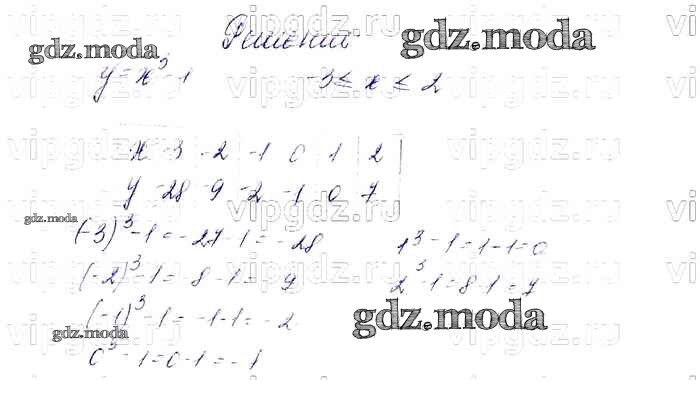 Решение.
gdz.moda
gdz.moda
y = x³ - 1   -3 ≤ x ≤ 2
x -3 -2 -1 0 1 2
y -28 -9 -2 -1 0 7
gdz.moda
(-3)³ - 1 = -27 - 1 = -28   1³ - 1 = 1 - 1 = 0
(-2)³ - 1 = -8 - 1 = -9   2³ - 1 = 8 - 1 = 7
(-1)³ - 1 = -1 - 1 = -2
gdz.moda
gdz.moda
0³ - 1 = 0 - 1 = -1
vipgdz.ru